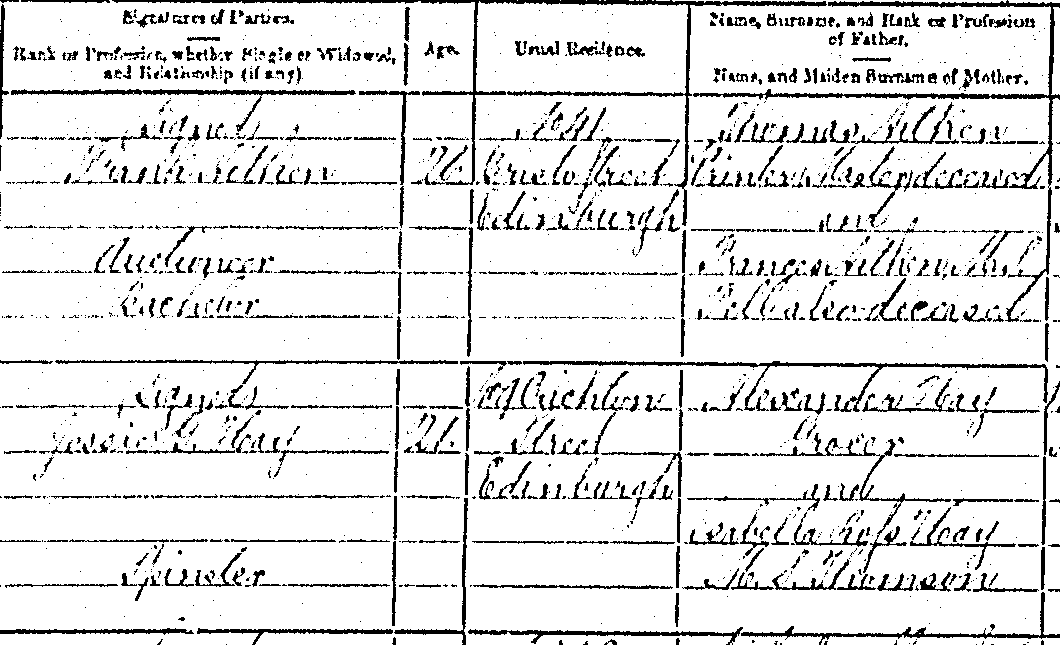 Signatures of Parties.
Rank or Profession, whether Single or Widowed,
and Relationship (if any)
Age.
Usual Residence.
Name, Surname, and Rank or Profession
of Father.
Name, and Maiden Surname of Mother.
Signed
Frank Aitken
Auctioneer
Bachelor
26
Bristo Street
Edinburgh
Thomas Aitken
Printer Master, deceased
and
Frances Aitken, M.S.
Bell also deceased
Signed
Jessie G. Hay
Spinster
21
Crichton
Street
Edinburgh
Alexander Hay
Grocer
and
Isabella Ross Hay
M. S. Thomson